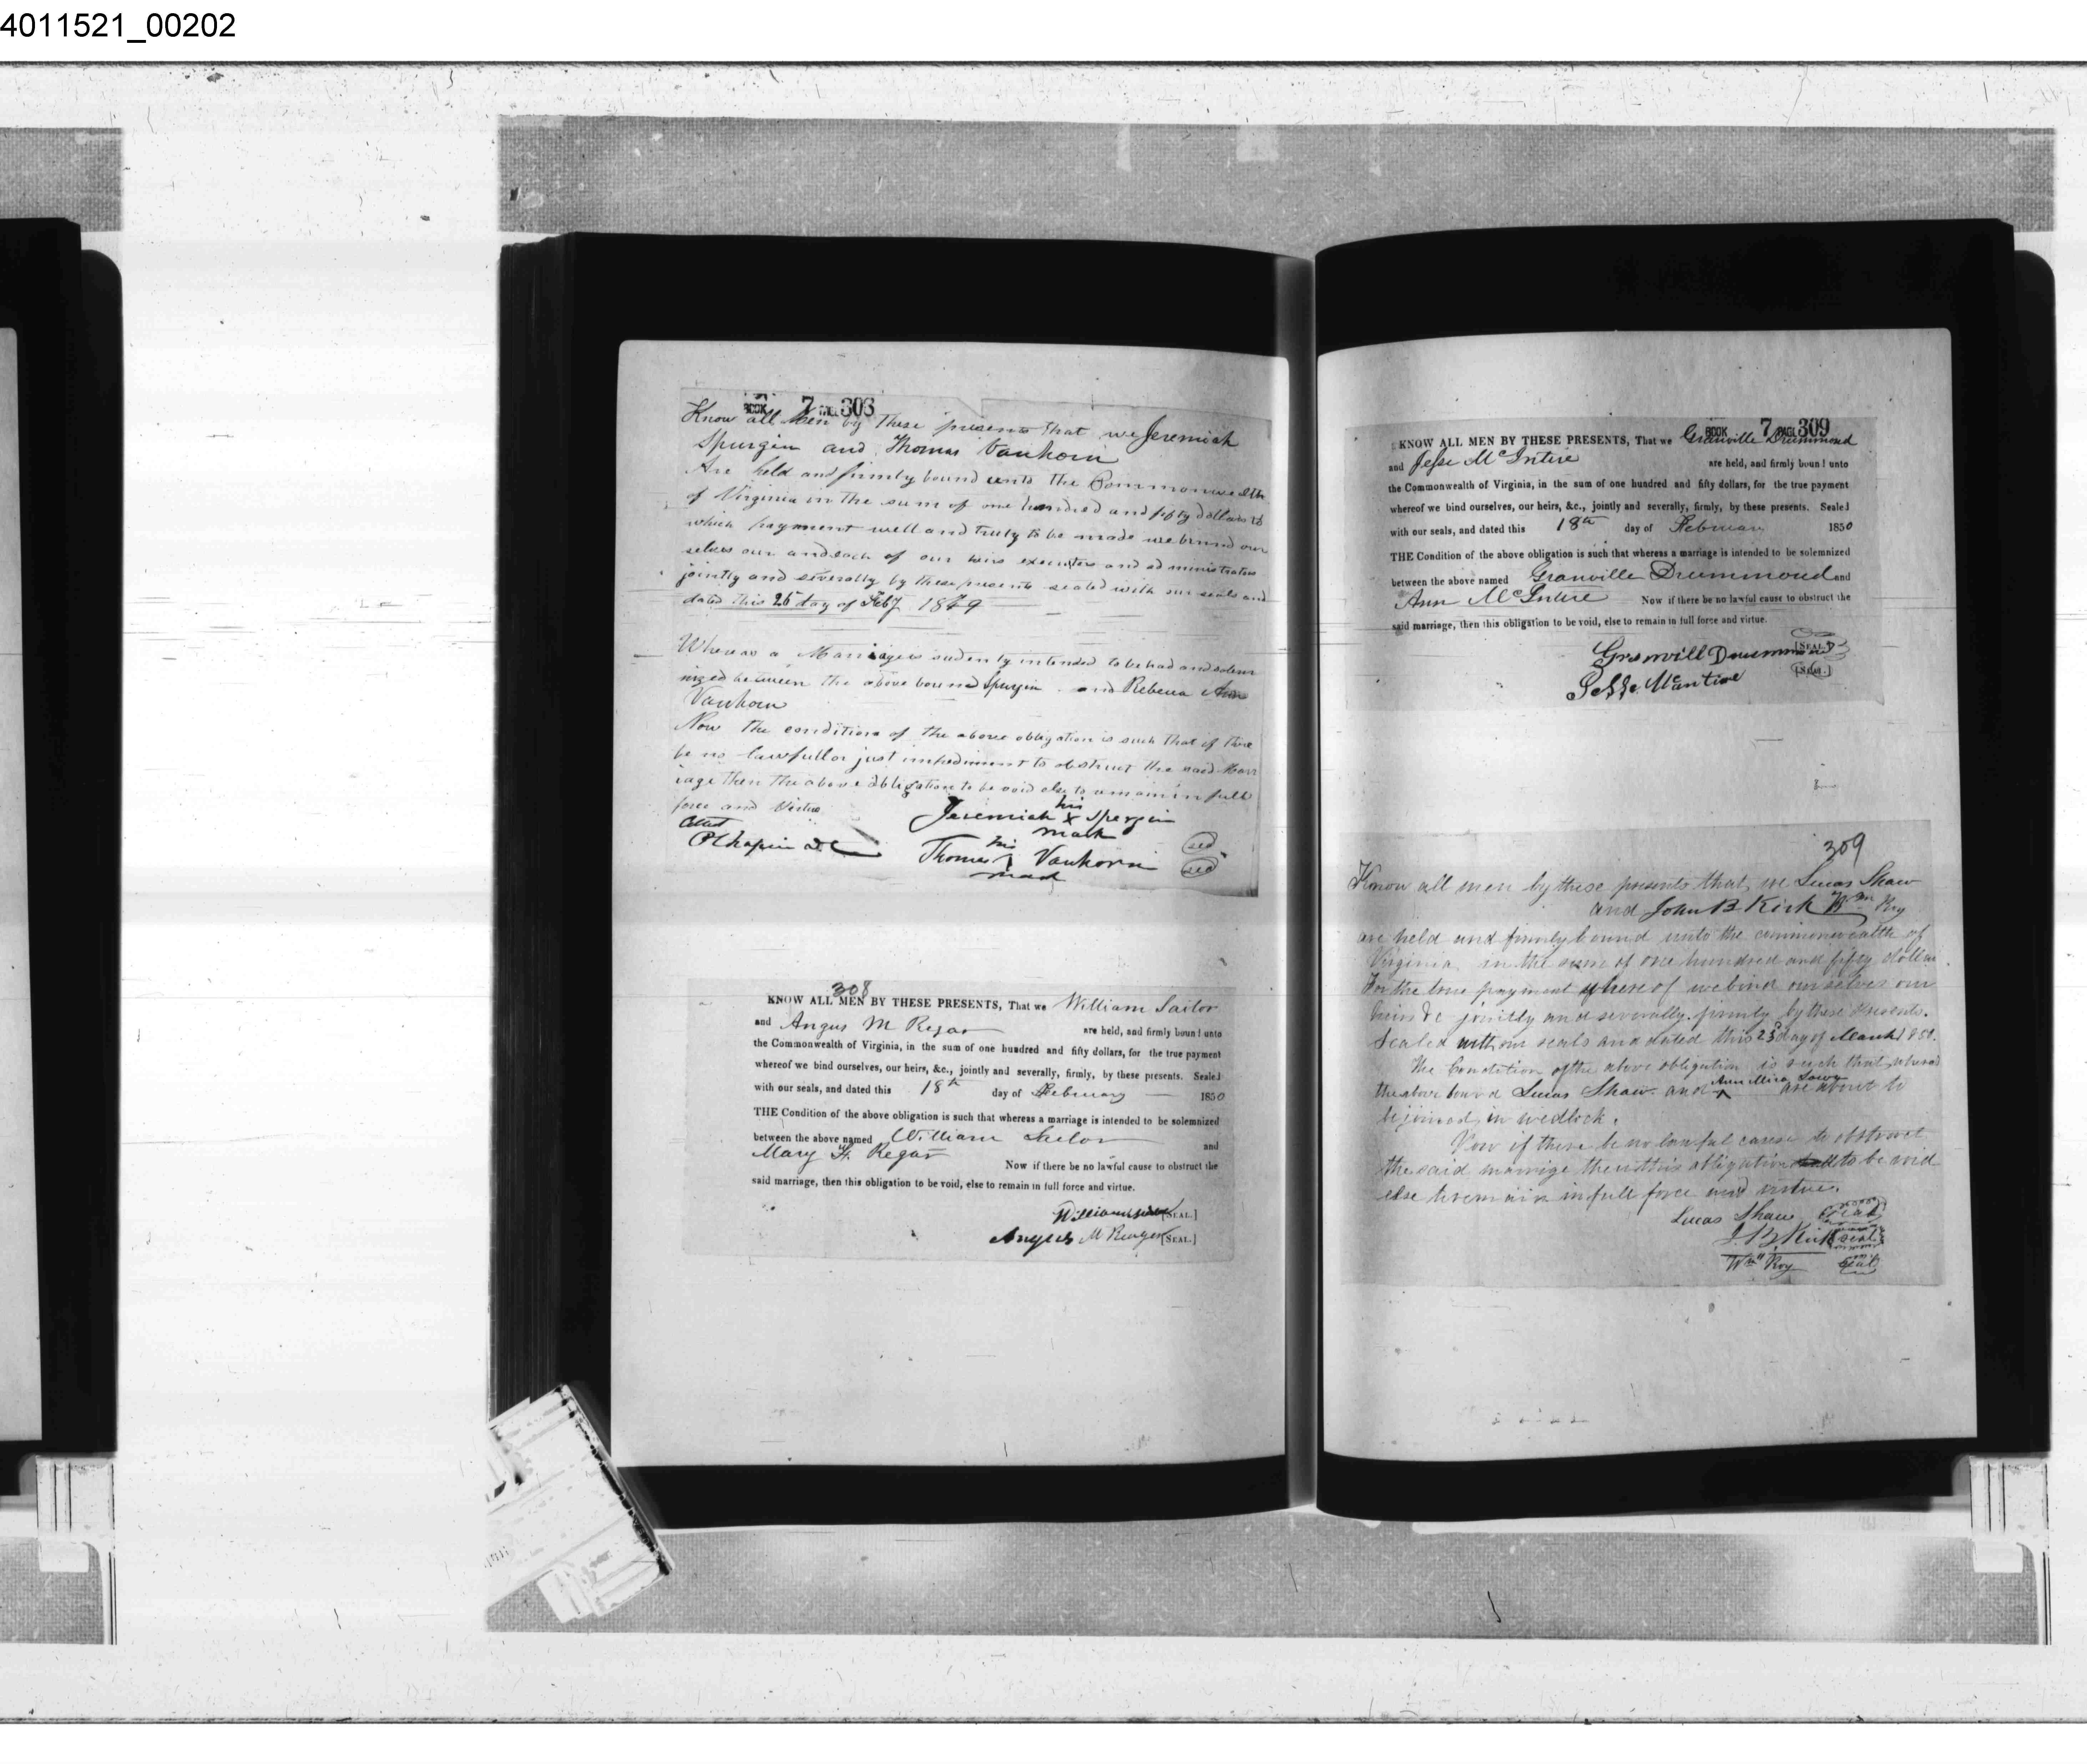 4011521_00202
BOOK 7 PAGE 308
Know all Men by these presents that we Jeremiah
Spurgin and Thomas Vanhorn
Are held and firmly bound unto the Commonwealth
of Virginia in the sum of one hundred and fifty dollars to
which payment well and truly to be made we bind our
selves our and each of our heirs executors and administrators
jointly and severally by these presents sealed with our seals and
dated this 26 day of Feby 1849
Whereas a Marriage is sudenly intended to be had and solem
nized between the above bound Spurgin and Rebecca Ann
Vanhorn
Now the conditions of the above obligation is such that if there
be no lawfull or just impediment to obstruct the said Marr
iage then the above obligation to be void else to remain in full
force and Virtue
Attest
P Chapin DC
Jeremiah his X mark Spergin
Thomas his X mark Vanhorn
308
KNOW ALL MEN BY THESE PRESENTS, That we William Sailor
and Angus M Regar are held, and firmly bound unto
the Commonwealth of Virginia, in the sum of one hundred and fifty dollars, for the true payment
whereof we bind ourselves, our heirs, &c., jointly and severally, firmly, by these presents. Sealed
with our seals, and dated this 18th day of February 1850
THE Condition of the above obligation is such that whereas a marriage is intended to be solemnized
between the above named William Sailor and
Mary F. Regar Now if there be no lawful cause to obstruct the
said marriage, then this obligation to be void, else to remain in full force and virtue.
William [SEAL.]
Angus M Reager [SEAL.]
BOOK 7 PAGE 309
KNOW ALL MEN BY THESE PRESENTS, That we Granville Drummond
and Jesse McIntire are held, and firmly bound unto
the Commonwealth of Virginia, in the sum of one hundred and fifty dollars, for the true payment
whereof we bind ourselves, our heirs, &c., jointly and severally, firmly, by these presents. Sealed
with our seals, and dated this 18th day of February 1850
THE Condition of the above obligation is such that whereas a marriage is intended to be solemnized
between the above named Granville Drummond and
Ann McIntire Now if there be no lawful cause to obstruct the
said marriage, then this obligation to be void, else to remain in full force and virtue.
Granvill Drummond [SEAL.]
Jesse Mcantire [SEAL.]
309
Know all men by these presents that we Lucas Shaw
and John B Kirk Wm Roy
are held and firmly bound unto the commonwealth of
Virginia in the sum of one hundred and fifty dollars.
For the true payment whereof we bind ourselves our
heirs &c jointly and severally firmly by these presents.
Sealed with our seals and dated this 23 day of March 1850.
The Condition of the above obligation is such that whereas
the above bound Lucas Shaw and Ann are about to
be joined in wedlock.
Now if there be no lawful cause to obstruct
the said marriage then this obligation to be void
else to remain in full force and virtue.
Lucas Shaw seal
J. B Kirk seal
Wm Roy seal